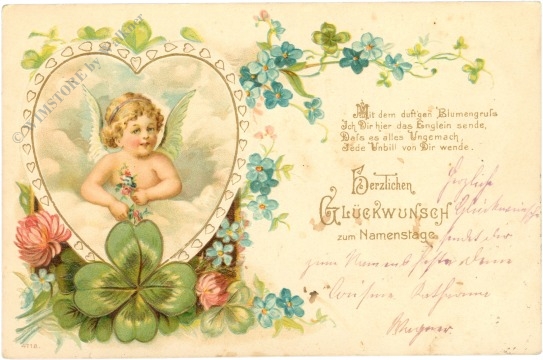 © WIMSTORE by
Mit dem duft'gen Blumengruß
Ich Dir hier das Englein sende,
Daß es alles Ungemach,
Jede Unbill von Dir wende.
Herzlichen
Glückwunsch
zum Namenstage.
Herzliche
Glückwünsche
sendet dir
zum Namensfeste deine
Cousine Katharina
Wagner